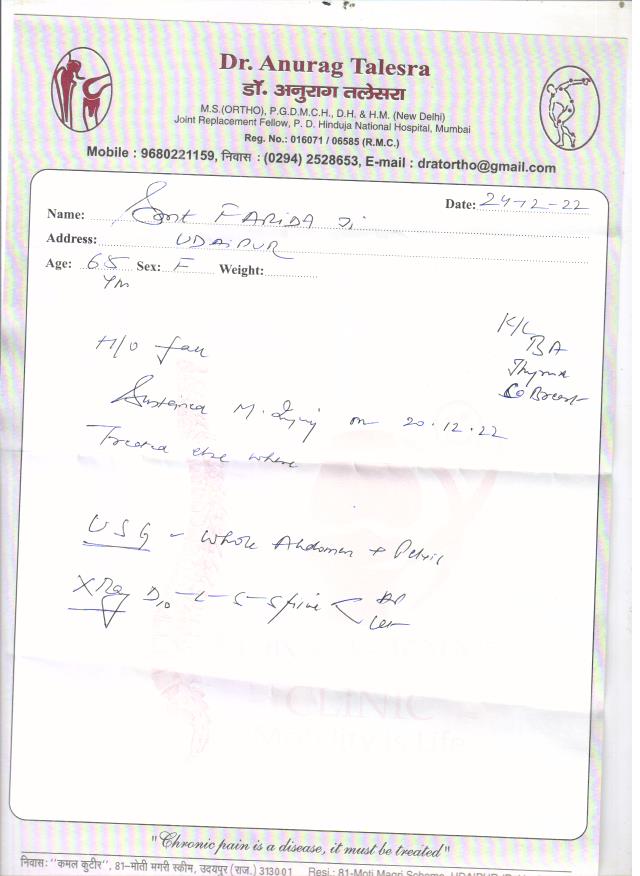 Dr. Anurag Talesra
डॉ. अनुराग तलेसरा
M.S.(ORTHO), P.G.D.M.C.H., D.H. & H.M. (New Delhi)
Joint Replacement Fellow, P. D. Hinduja National Hospital, Mumbai
Reg. No.: 016071 / 06585 (R.M.C.)
Mobile : 9680221159, निवास : (0294) 2528653, E-mail : dratortho@gmail.com
Date: 24-12-22
Name: Smt FARIDA Ji
Address: UDAIPUR
Age: 65 Sex: F Weight:
Yrs
K/C
BA
Thyroid
Ca Breast
H/O fall
Sustained M. Injury on 20.12.22
Treated else where
USG - Whole Abdomen + Pelvis
XRay D10 -L-S-Spine < AP
Lat
CLINIC
Mobility is Life
"Chronic pain is a disease, it must be treated"
निवास: "कमल कुटीर", 81-मोती मगरी स्कीम, उदयपुर (राज.) 313001 Resi.: 81-Moti Magri Scheme,